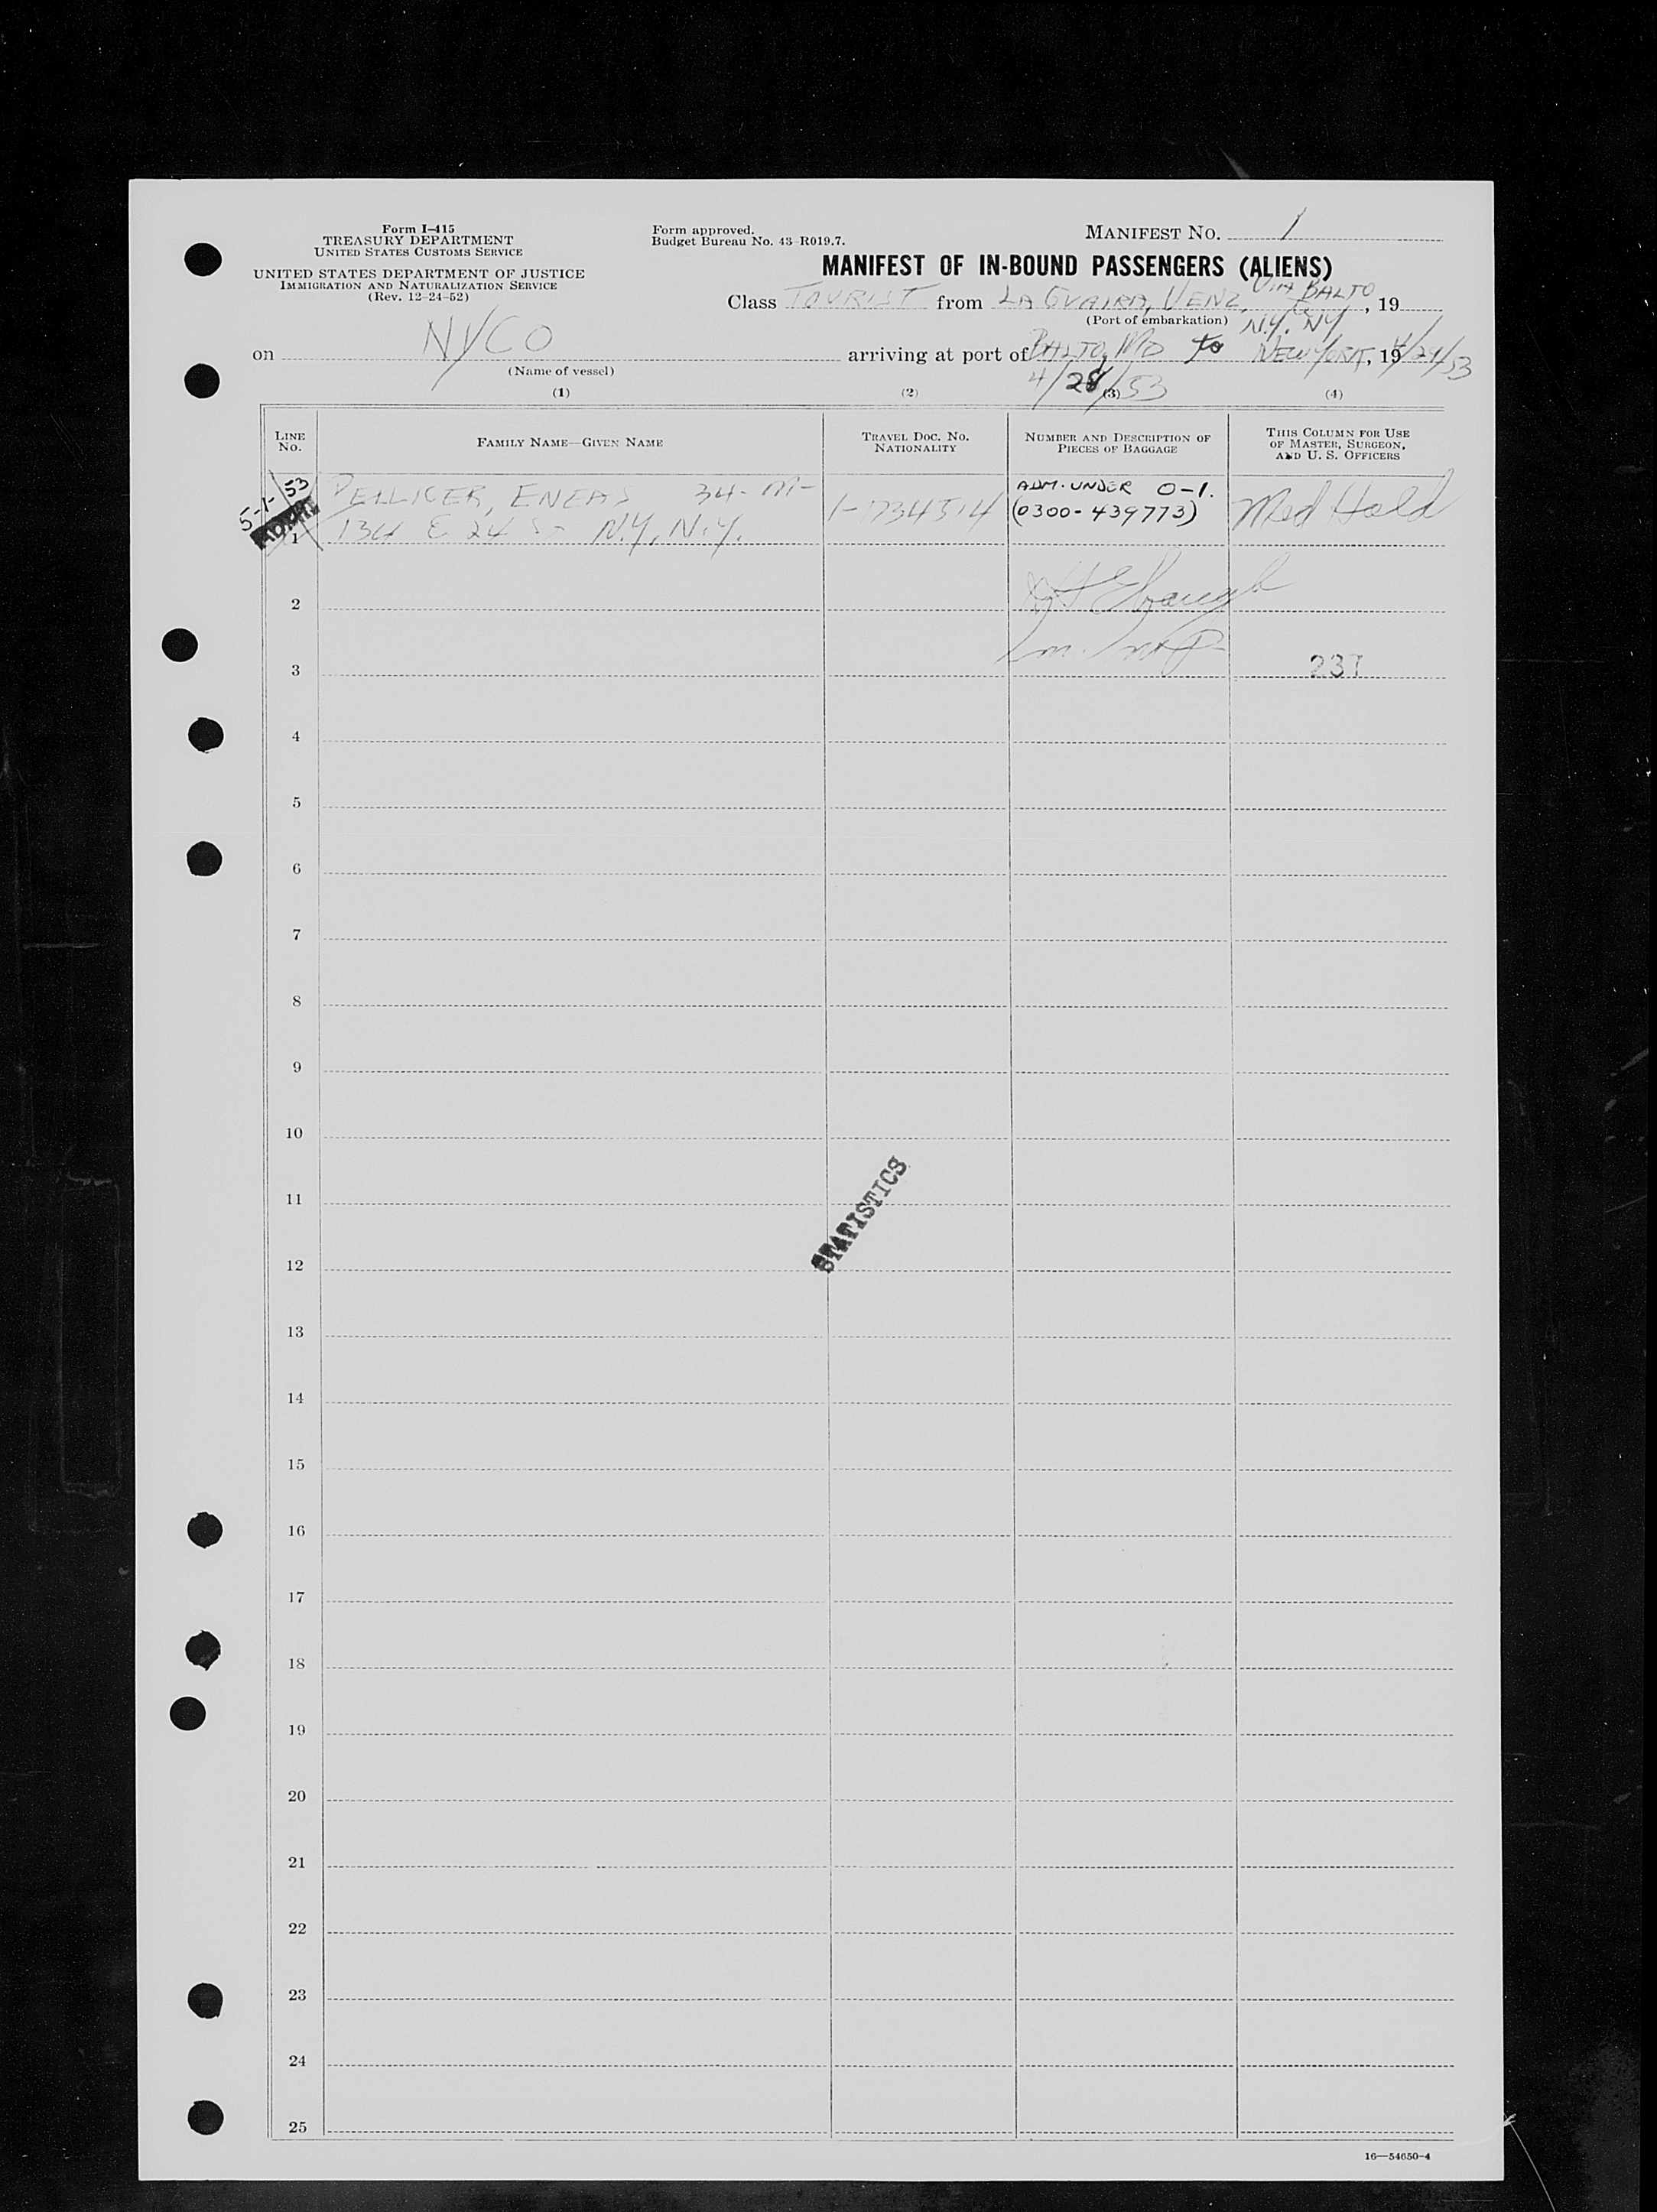 Form I-415
TREASURY DEPARTMENT
UNITED STATES CUSTOMS SERVICE
UNITED STATES DEPARTMENT OF JUSTICE
IMMIGRATION AND NATURALIZATION SERVICE
(Rev. 12-24-52)
Form approved.
Budget Bureau No. 43-R019.7.
MANIFEST NO. 1
MANIFEST OF IN-BOUND PASSENGERS (ALIENS)
Class TOURIST from LA GUAIRA, VENZ, VIA BALTO, 19
(Port of embarkation) N.Y. NY
on NYCO arriving at port of BALTO, MD to NEW YORK, 19 4/29/53
(Name of vessel) 4/28/53
(1) (2) (3) (4)
LINE No. FAMILY NAME—GIVEN NAME TRAVEL DOC. NO. NATIONALITY NUMBER AND DESCRIPTION OF PIECES OF BAGGAGE THIS COLUMN FOR USE OF MASTER, SURGEON, AND U. S. OFFICERS
5-1-53 PELLICER, ENEAS 34-M- ADM. UNDER O-1. Med Hold
ADMITTED 1 134 E 24 ST N.Y, N.Y. (0300-439773)
2
3 237
4
5
6
7
8
9
10
STATISTICS
11
12
13
14
15
16
17
18
19
20
21
22
23
24
25
16—54650-4